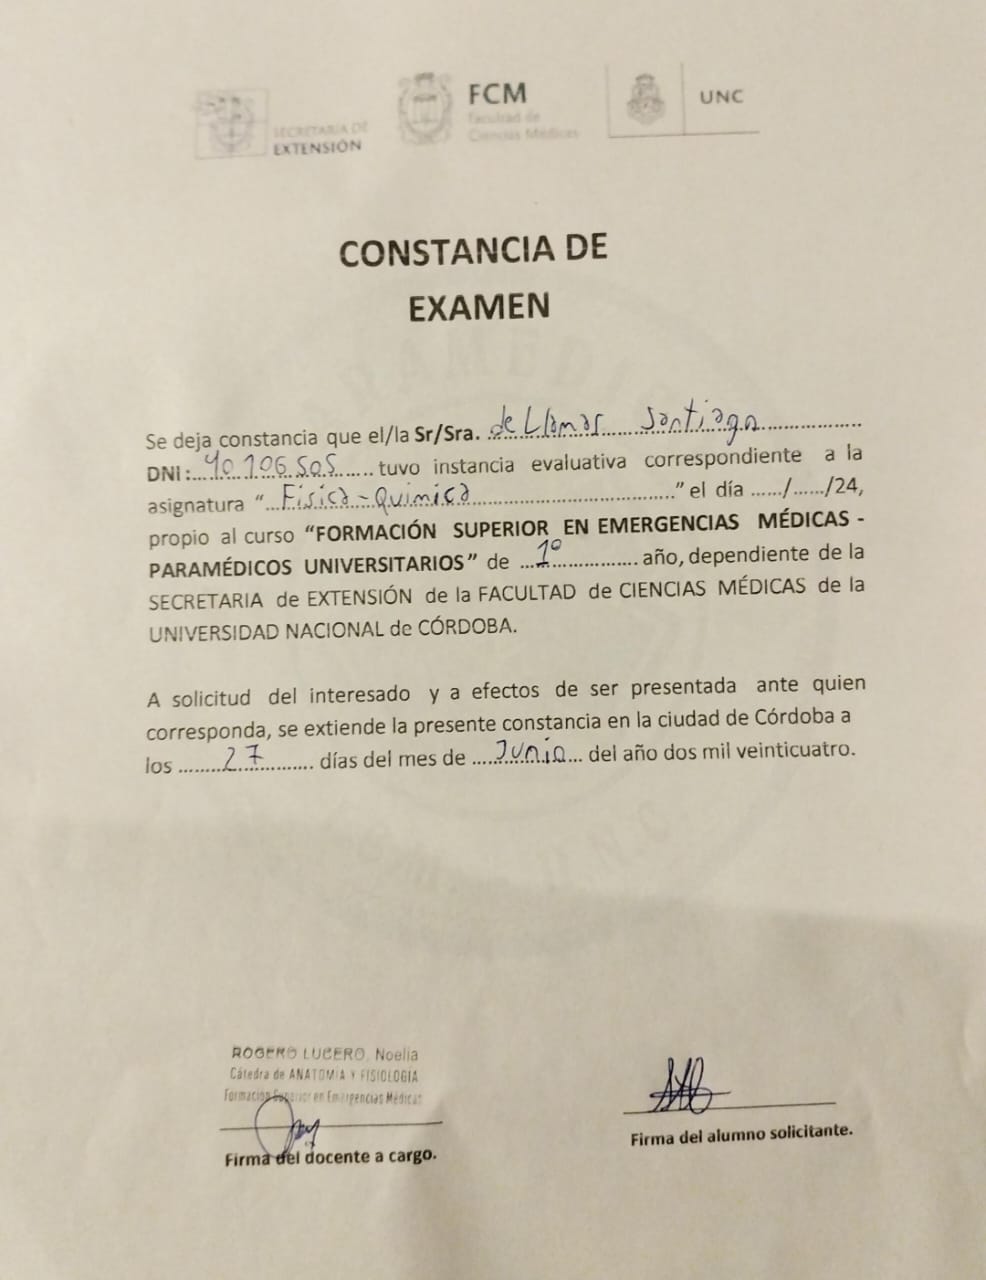 SECRETARIA DE
EXTENSIÓN
FCM
Facultad de
Ciencias Médicas
UNC
CONSTANCIA DE
EXAMEN
Se deja constancia que el/la Sr/Sra. de Llamas Santiago
DNI: 40.106.505 tuvo instancia evaluativa correspondiente a la
asignatura “Física-Química” el día ....../....../24,
propio al curso “FORMACIÓN SUPERIOR EN EMERGENCIAS MÉDICAS -
PARAMÉDICOS UNIVERSITARIOS” de 1º año, dependiente de la
SECRETARIA de EXTENSIÓN de la FACULTAD de CIENCIAS MÉDICAS de la
UNIVERSIDAD NACIONAL de CÓRDOBA.
A solicitud del interesado y a efectos de ser presentada ante quien
corresponda, se extiende la presente constancia en la ciudad de Córdoba a
los 27 días del mes de Junio del año dos mil veinticuatro.
ROGERO LUCERO, Noelia
Cátedra de ANATOMIA Y FISIOLOGIA
Formación Superior en Emergencias Médicas
Firma del docente a cargo.
Firma del alumno solicitante.